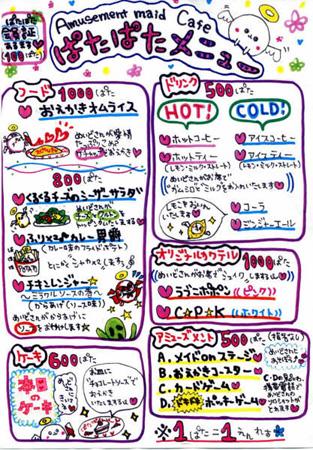 Amusement maid Cafe
ぱたぱたメニュー
ぱたぱた
会員証
あります♥
100ぱた
フード 1000ぱた
おえかきオムライス
めいどさんが愛情
たっぷりこめて
おえかき
800ぱた
くるくるチーズのシーザーサラダ
めいどさんが
カレー風味
(カレー味のフライドポテト)
POTATO
チキンレンジャー☆
～ミラクルソースの巻～
(からあげ(ソース味))
めいどさんが
ソースをお付けします☆
ケーキ 600ぱた
本日の
ケーキ
お皿に
"チョコレートソース"で
おえかき
いたしまする
ドリンク 500ぱた
HOT!
COLD!
ホットコーヒー
ホットティー
(レモン・ミルク・ストレート)
アイスコーヒー
アイスティー
(レモン・ミルク・ストレート)
めいどさんがお席で
"ガムシロ"と"ミルク"をおいれいたします♥
コーラ
ジンジャーエール
オリジナルカクテル 1000ぱた
めいどさんがお席でシェイクしまする
ラブ♡ポポン((ピンク))
C☆P☆K((ホワイト))
アミューズメント 500ぱた
A. メイドonステージ
B. おえかきコースター
C. カードゲーム
D. ドキドキ ポッキーゲーム
※1ぱたニ1えんれす